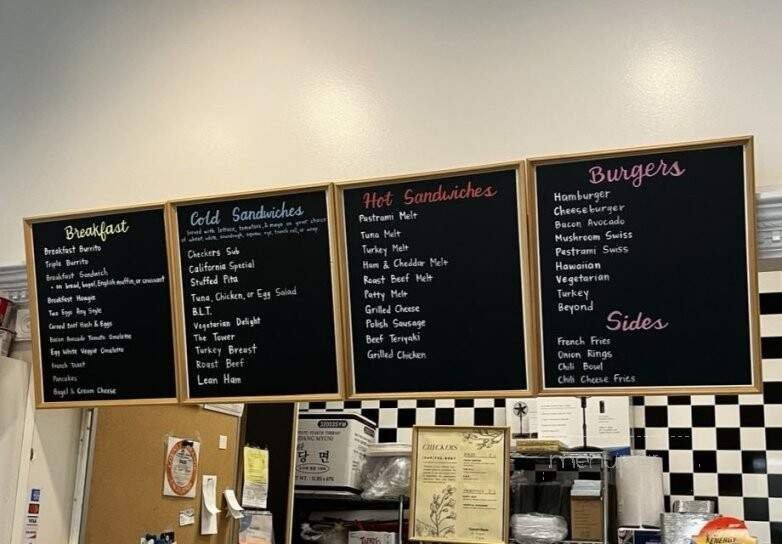 Breakfast
Breakfast Burrito
Triple Burrito
Breakfast Sandwich
- on bread, bagel, English muffin, or croissant
Breakfast Hoagie
Two Eggs Any Style
Corned Beef Hash & Eggs
Bacon Avocado Tomato Omelette
Egg White Veggie Omelette
French Toast
Pancakes
Bagel & Cream Cheese
Cold Sandwiches
Served with lettuce, tomatoes, & mayo on your choice
of wheat, white, sourdough, squaw, rye, french roll, or wrap
Checkers Sub
California Special
Stuffed Pita
Tuna, Chicken, or Egg Salad
B.L.T.
Vegetarian Delight
The Tower
Turkey Breast
Roast Beef
Lean Ham
Hot Sandwiches
Pastrami Melt
Tuna Melt
Turkey Melt
Ham & Cheddar Melt
Roast Beef Melt
Patty Melt
Grilled Cheese
Polish Sausage
Beef Teriyaki
Grilled Chicken
Burgers
Hamburger
Cheeseburger
Bacon Avocado
Mushroom Swiss
Pastrami Swiss
Hawaiian
Vegetarian
Turkey
Beyond
Sides
French Fries
Onion Rings
Chili Bowl
Chili Cheese Fries
당면
CHECKERS
VISA